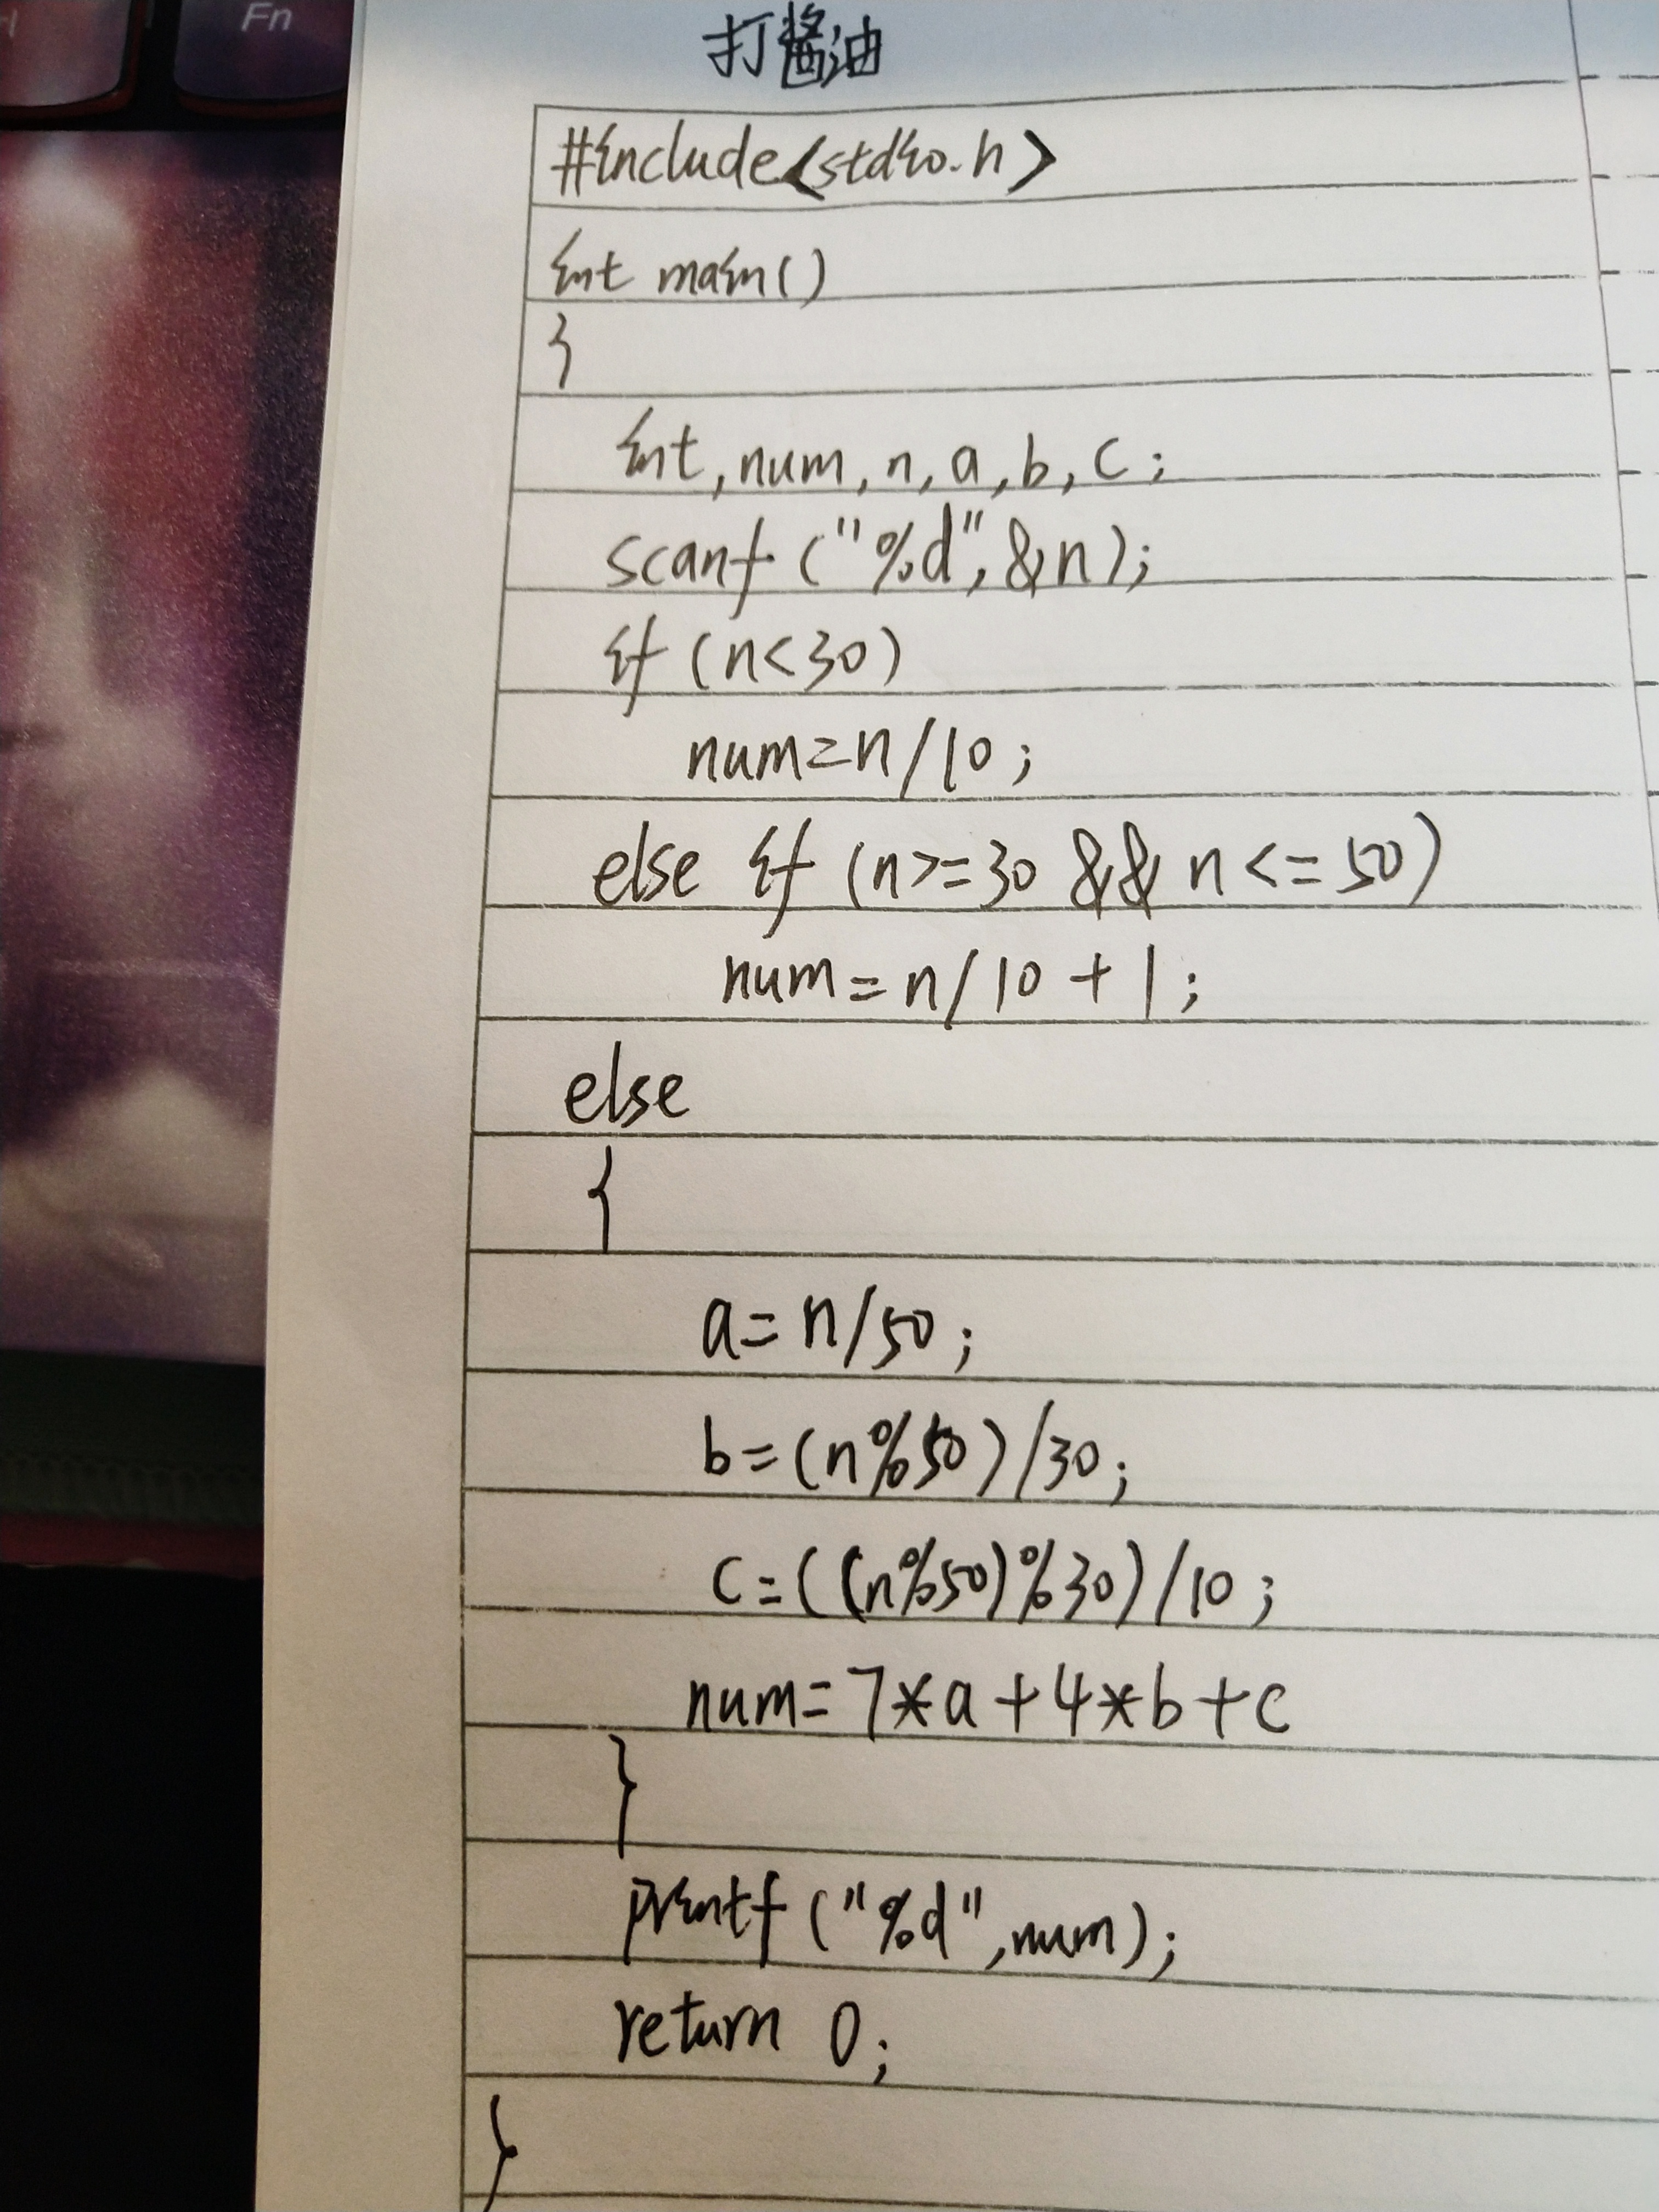 Fn
打酱油
#include<stdio.h>
int main()
{
int,num,n,a,b,c;
scanf("%d",&n);
if (n<30)
num=n/10;
else if (n>=30 && n<=50)
num=n/10+1;
else
{
a=n/50;
b=(n%50)/30;
c=((n%50)%30)/10;
num=7*a+4*b+c
}
printf("%d",num);
return 0;
}